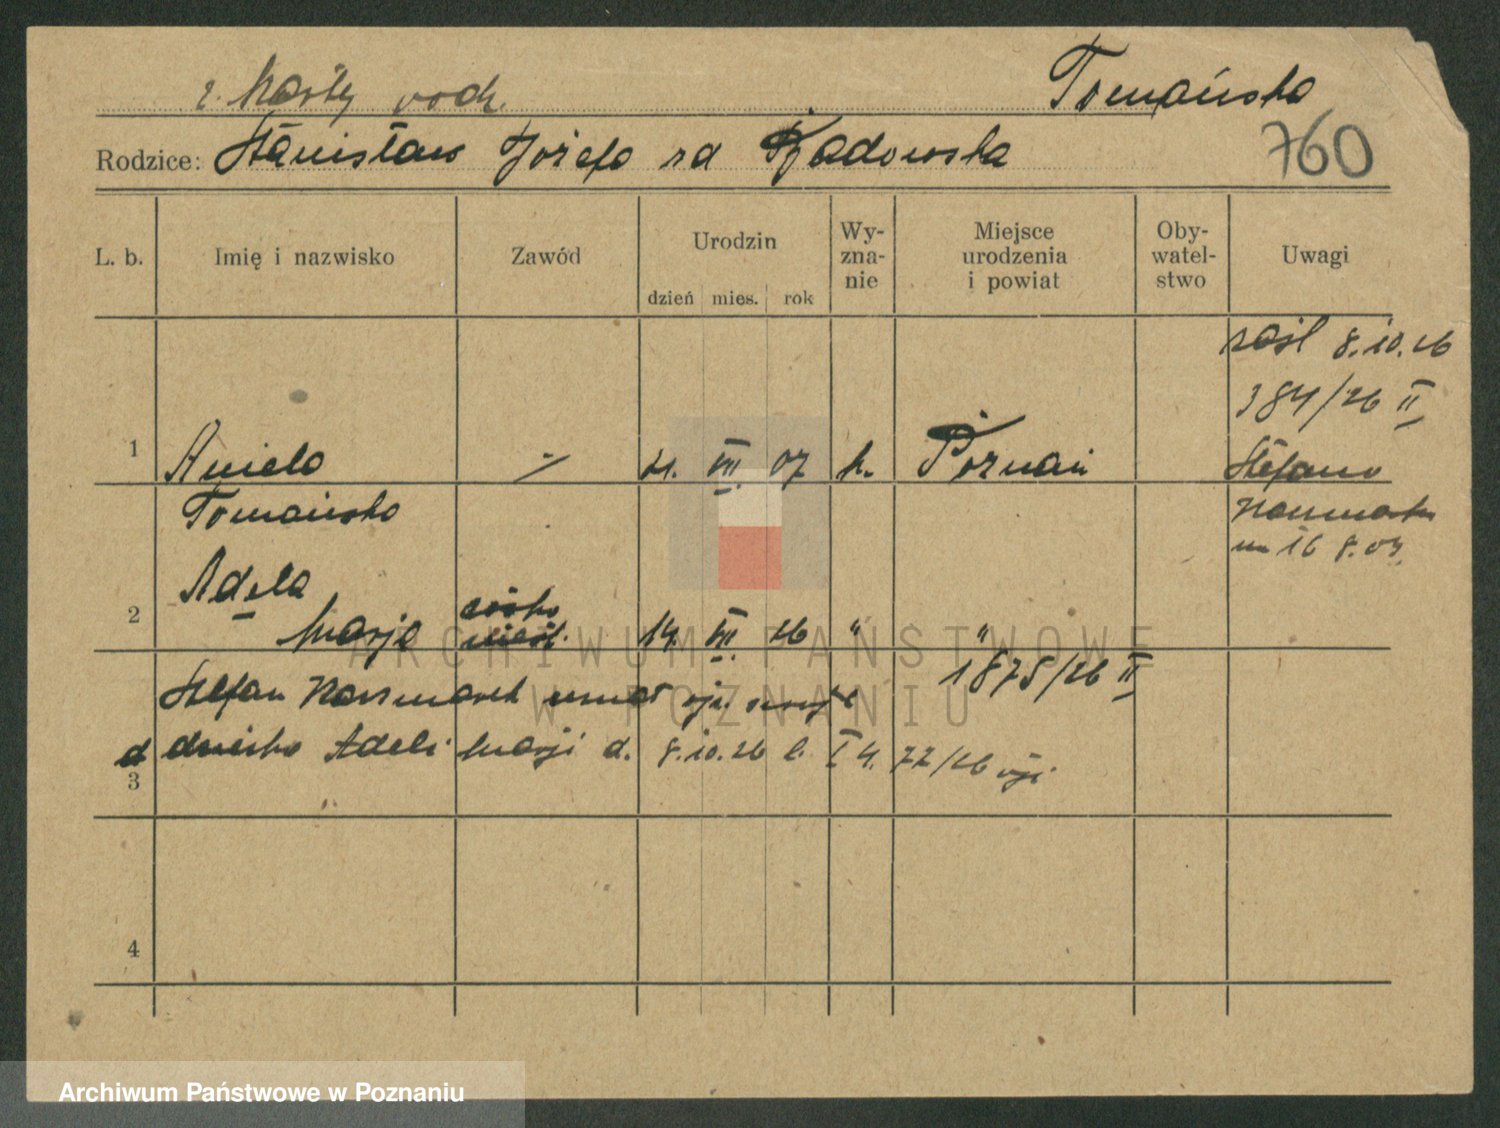 z Karty rodz. Tomańska
Rodzice: Stanisław Józefa zd Rzadowska 760
L. b. Imię i nazwisko Zawód Urodzin dzień mies. rok Wyznanie Miejsce urodzenia i powiat Obywatelstwo Uwagi
zaśl 8.10.26
384/26 II
1 Aniela ./. 21. VII. 07 k. Poznań Stefana
Tomańska Kaczmarka
ur 16 8.03
Adela córka
2 Marja nieśl. 14. VII. 26 " "
1875/26 II
Stefan Kaczmarek uznał ojc.
d dziecko Adeli Marji d. 8.10.26 l. I 4. 77/26
3
4
ARCHIWUM PAŃSTWOWE
W POZNANIU
Archiwum Państwowe w Poznaniu